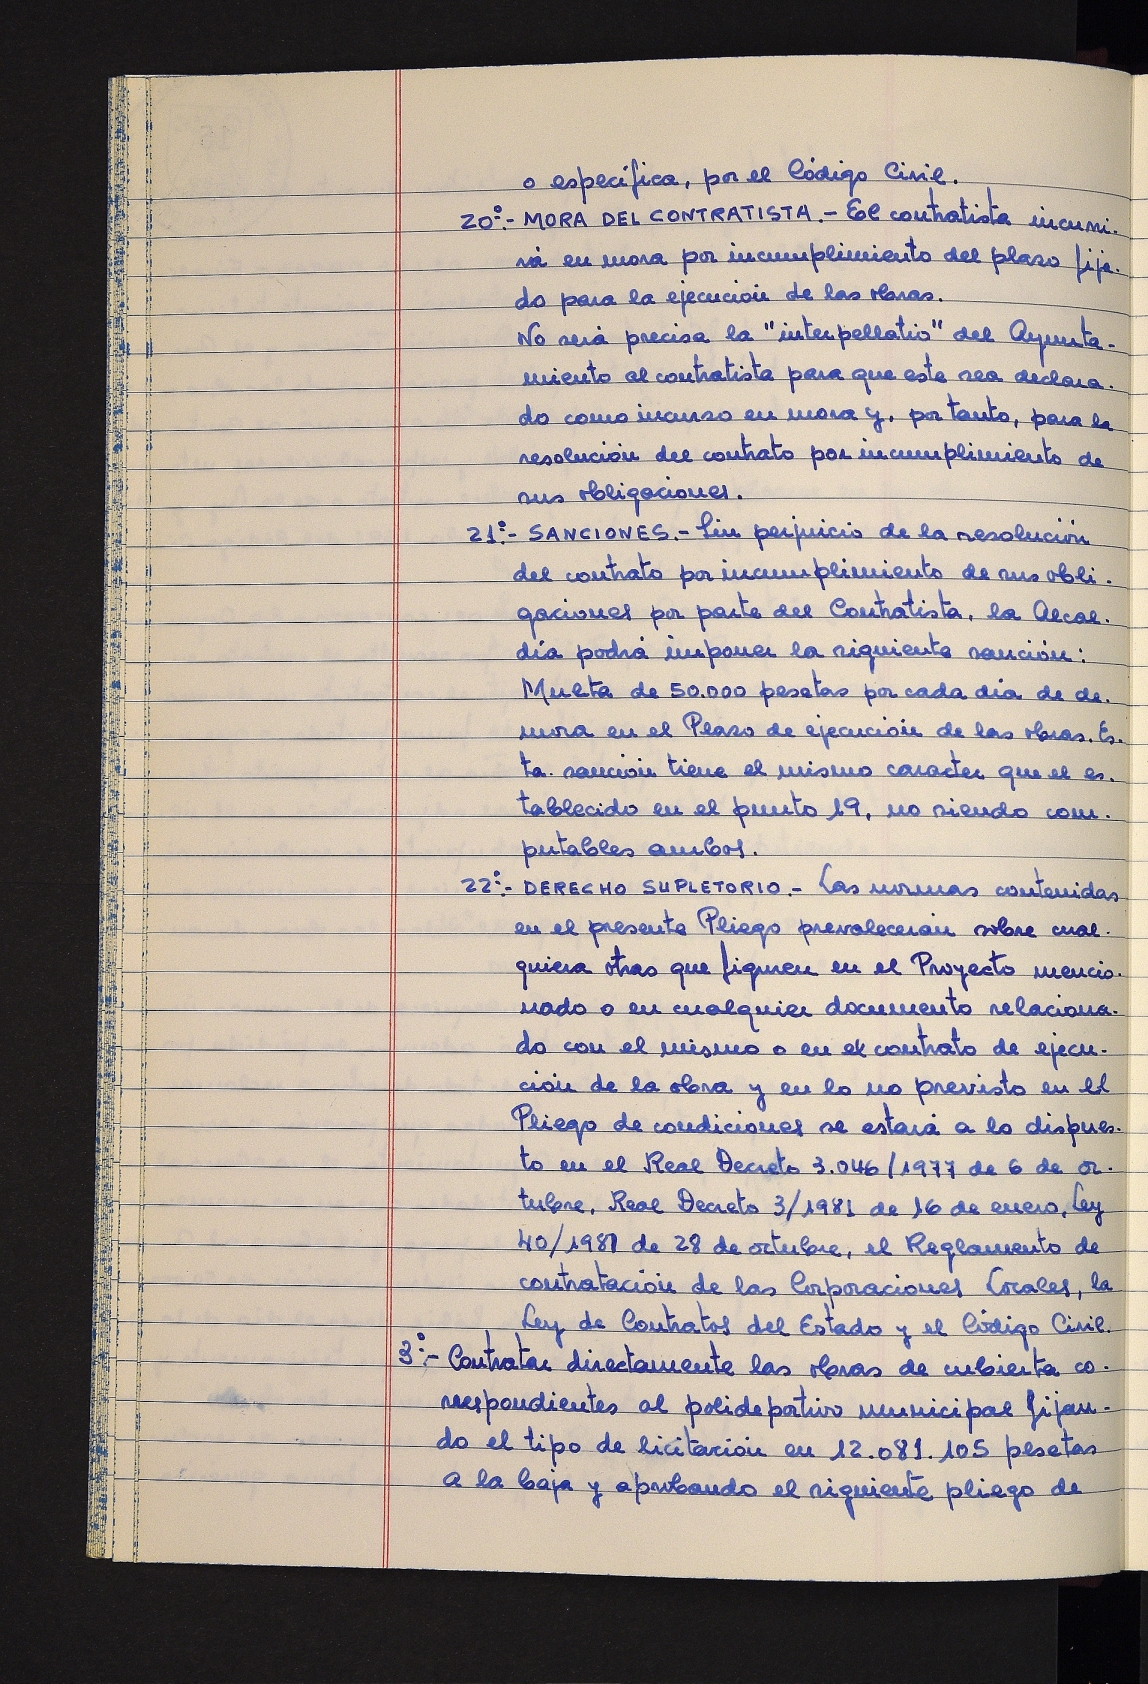 o específica, por el Código Civil.
20º.- MORA DEL CONTRATISTA.- El contratista incurri-
rá en mora por incumplimiento del plazo fija-
do para la ejecución de las obras.
No será precisa la "interpellatio" del Ayunta-
miento al contratista para que este sea declara-
do como incurso en mora y, por tanto, para la
resolución del contrato por incumplimiento de
sus obligaciones.
21º.- SANCIONES.- Sin perjuicio de la resolución
del contrato por incumplimiento de sus obli-
gaciones por parte del Contratista, la Alcal-
día podrá imponer la siguiente sanción:
Multa de 50.000 pesetas por cada día de de-
mora en el Plazo de ejecución de las obras. Es-
ta sanción tiene el mismo caracter que el es-
tablecido en el punto 19, no siendo com-
putables ambos.
22º.- DERECHO SUPLETORIO.- Las normas contenidas
en el presente Pliego prevalecerán sobre cual-
quiera otras que figuren en el Proyecto mencio-
nado o en cualquier documento relaciona-
do con el mismo o en el contrato de ejecu-
ción de la obra y en lo no previsto en el
Pliego de condiciones se estará a lo dispues-
to en el Real Decreto 3.046/1977 de 6 de oc-
tubre, Real Decreto 3/1981 de 16 de enero, Ley
40/1981 de 28 de octubre, el Reglamento de
contratación de las Corporaciones Locales, la
Ley de Contratos del Estado y el Código Civil.
3º.- Contratar directamente las obras de cubierta co-
rrespondientes al polideportivo municipal fijan-
do el tipo de licitación en 12.081.105 pesetas
a la baja y aprobando el siguiente pliego de